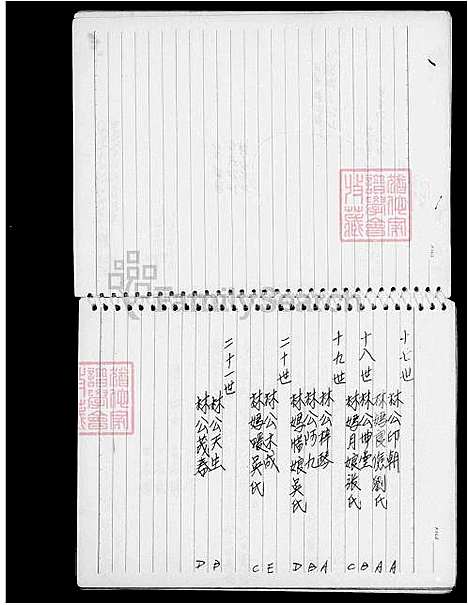 十七世
林公印朝 A
劉氏 A
十八世
林公坤堂 B
林媽月娘張氏 C
十九世
林公梓琴 A
林公阿九 B
林媽惜娘吳氏 D
二十世
林公木成 E
林媽暖吳氏 C
二十一世
林公天生 B
林公茂春 D
FamilySearch